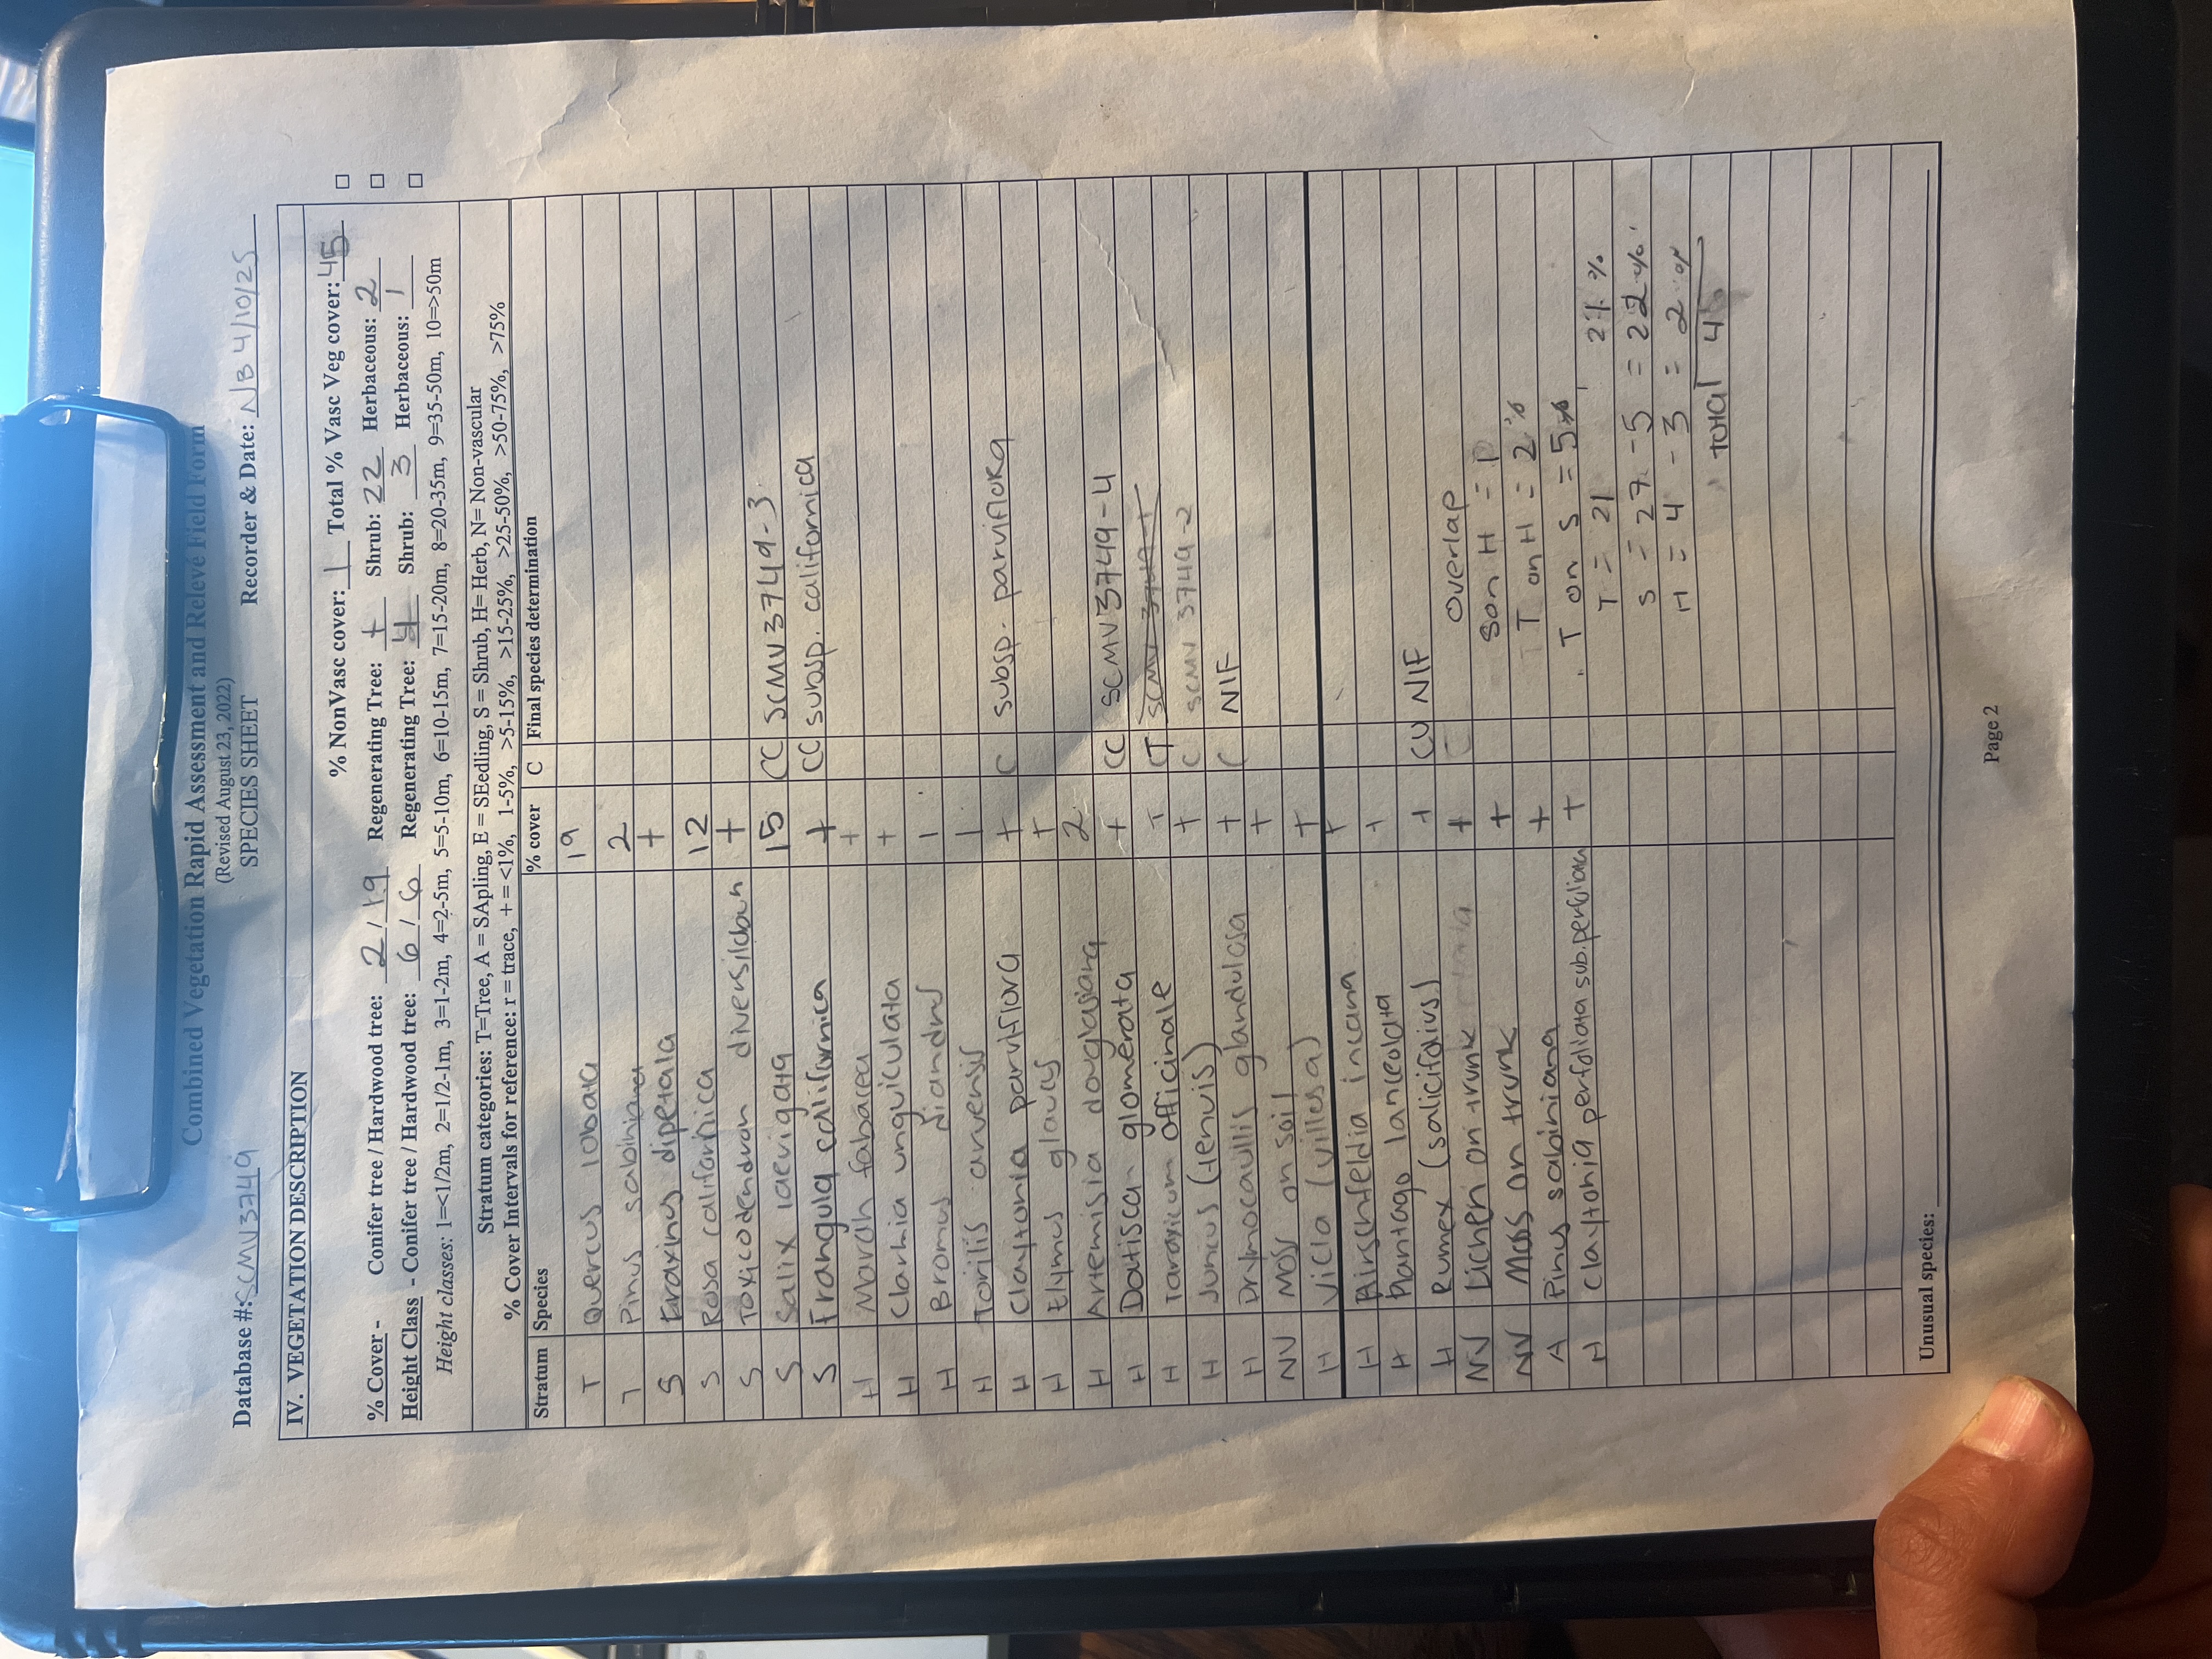 Combined Vegetation Rapid Assessment and Relevé Field Form
(Revised August 23, 2022)
Database #: SCMV3749 SPECIES SHEET Recorder & Date: NB 4/10/25
IV. VEGETATION DESCRIPTION
% NonVasc cover: 1 Total % Vasc Veg cover: 45 □
% Cover - Conifer tree / Hardwood tree: 2 / 19 Regenerating Tree: + Shrub: 22 Herbaceous: 2 □
Height Class - Conifer tree / Hardwood tree: 6 / 6 Regenerating Tree: 4 Shrub: 3 Herbaceous: 1 □
Height classes: 1=<1/2m, 2=1/2-1m, 3=1-2m, 4=2-5m, 5=5-10m, 6=10-15m, 7=15-20m, 8=20-35m, 9=35-50m, 10=>50m
Stratum categories: T=Tree, A = SApling, E = SEedling, S = Shrub, H= Herb, N= Non-vascular
% Cover Intervals for reference: r = trace, + = <1%, 1-5%, >5-15%, >15-25%, >25-50%, >50-75%, >75%
Stratum Species % cover C Final species determination
T Quercus lobata 19
T Pinus sabiniana 2
S Fraxinus dipetala +
S Rosa californica 12
S Toxicodendron diversilobun +
S Salix laevigata 15 CC SCMV3749-3
S Frangula californica + CC subsp. californica
H Marah fabacea +
H Clarkia unguiculata +
H Bromus diandrus 1
H Torilis arvensis 1
H Claytonia parviflora + C subsp. parviflora
H Elymus glaucus +
H Artemisia douglasiana 2
H Datisca glomerata + CC SCMV3749-4
H Taraxicum officinale + CT SCMV 3749-1
H Juncus (tenuis) + C SCMV 3749-2
H Drymocaullis glandulosa + C NIF
NV Moss on soil +
H Vicia (villosa) +
H Hirschfeldia incana +
H Plantago lanceolata +
H Rumex (salicifolius) + CU NIF
NV Lichen on trunk + C Overlap
NV Moss on trunk + S on H = 1
A Pinus sabiniana + T on H = 2%
H Claytonia perfoliata sub. perfoliata + T on S = 5%
T = 21 21%
S = 27 - 5 = 22%
H = 4 - 3 = 2%
total 45
Unusual species:
Page 2